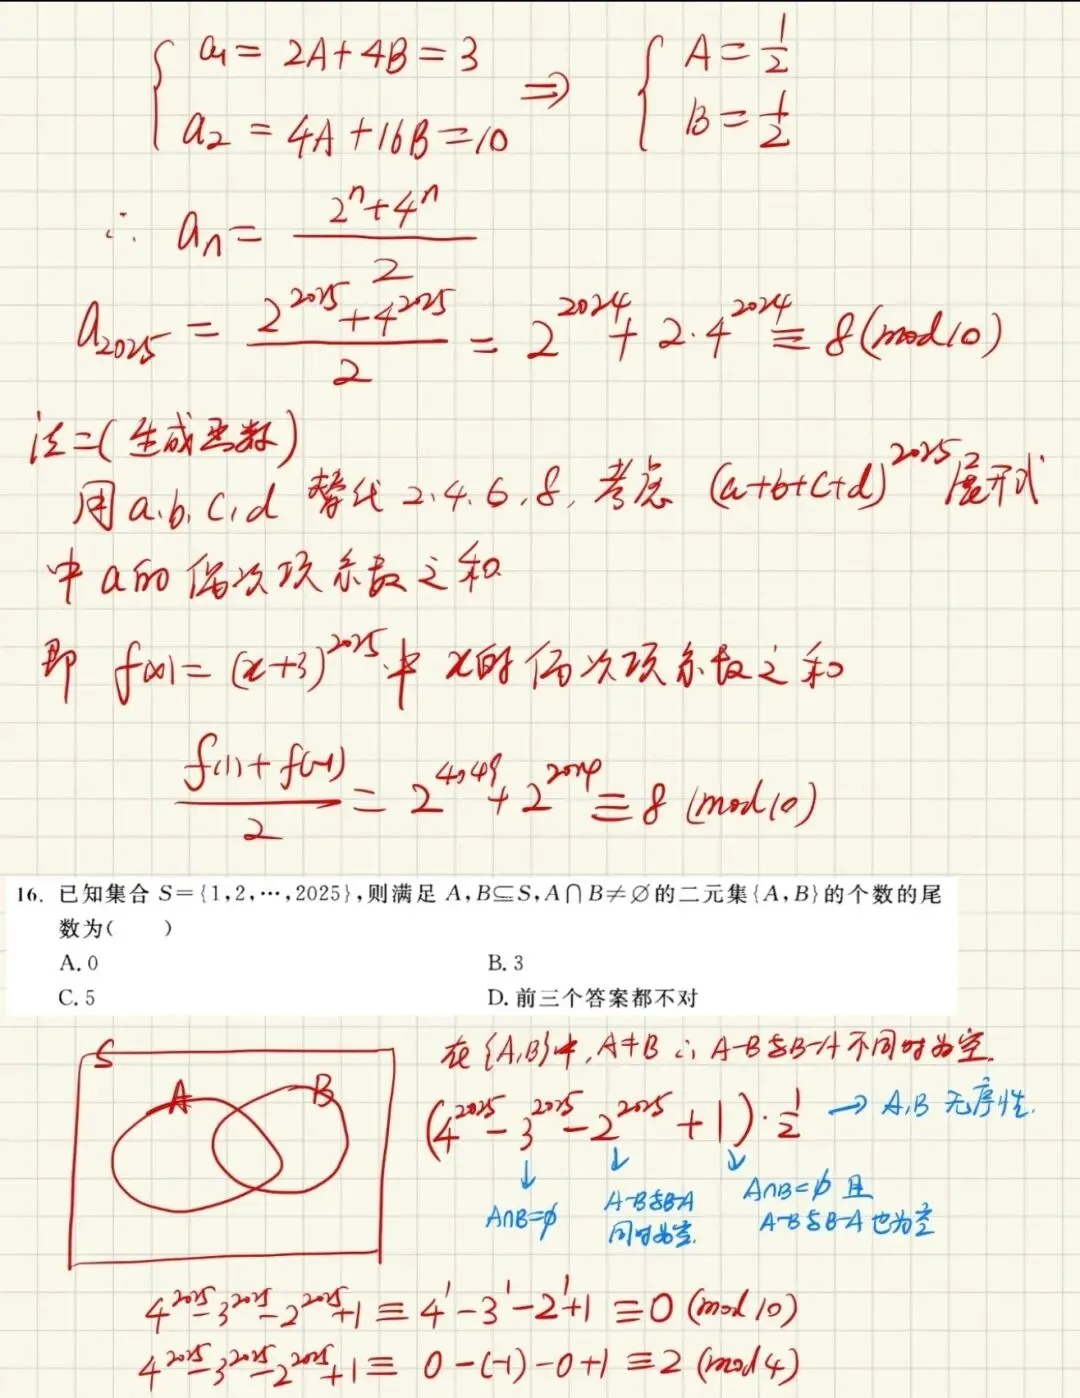 a₁ = 2A + 4B = 3 ⇒ A = 1/2
a₂ = 4A + 16B = 10 B = 1/2
∴ aₙ = (2ⁿ + 4ⁿ)/2
a₂₀₂₅ = (2²⁰²⁵ + 4²⁰²⁵)/2 = 2²⁰²⁴ + 2·4²⁰²⁴ ≡ 8 (mod 10)
法二(生成函数)
用 a.b.c,d 替代 2.4.6.8, 考虑 (a+b+c+d)²⁰²⁵ 展开式
中 a 的偶次项系数之和
即 f(x) = (x+3)²⁰²⁵ 中 x 的偶次项系数之和
(f(1) + f(-1))/2 = 2⁴⁰⁴⁹ + 2²⁰²⁴ ≡ 8 (mod 10)
16. 已知集合 S={1,2,⋯,2025},则满足 A,B⊆S,A∩B≠∅的二元集{A,B}的个数的尾
数为( )
A. 0 B. 3
C. 5 D. 前三个答案都不对
S
A B
在{A,B}中, A≠B ∴ A-B与B-A不同时为空.
(4²⁰²⁵ - 3²⁰²⁵ - 2²⁰²⁵ + 1)·1/2 → A,B 无序性.
↓ ↓ ↓
A∩B=∅
A-B与B-A
同时为空.
A∩B=∅ 且
A-B与B-A 也为空
4²⁰²⁵ - 3²⁰²⁵ - 2²⁰²⁵ + 1 ≡ 4¹ - 3¹ - 2¹ + 1 ≡ 0 (mod 10)
4²⁰²⁵ - 3²⁰²⁵ - 2²⁰²⁵ + 1 ≡ 0 - (-1) - 0 + 1 ≡ 2 (mod 4)